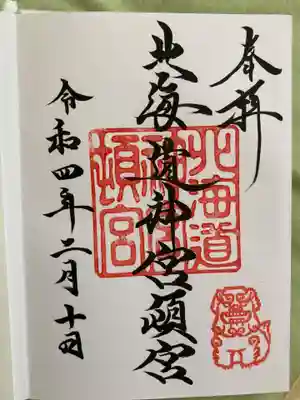 奉拝
北海道神宮頓宮
北海道
神宮
頓宮
令和四年二月十日